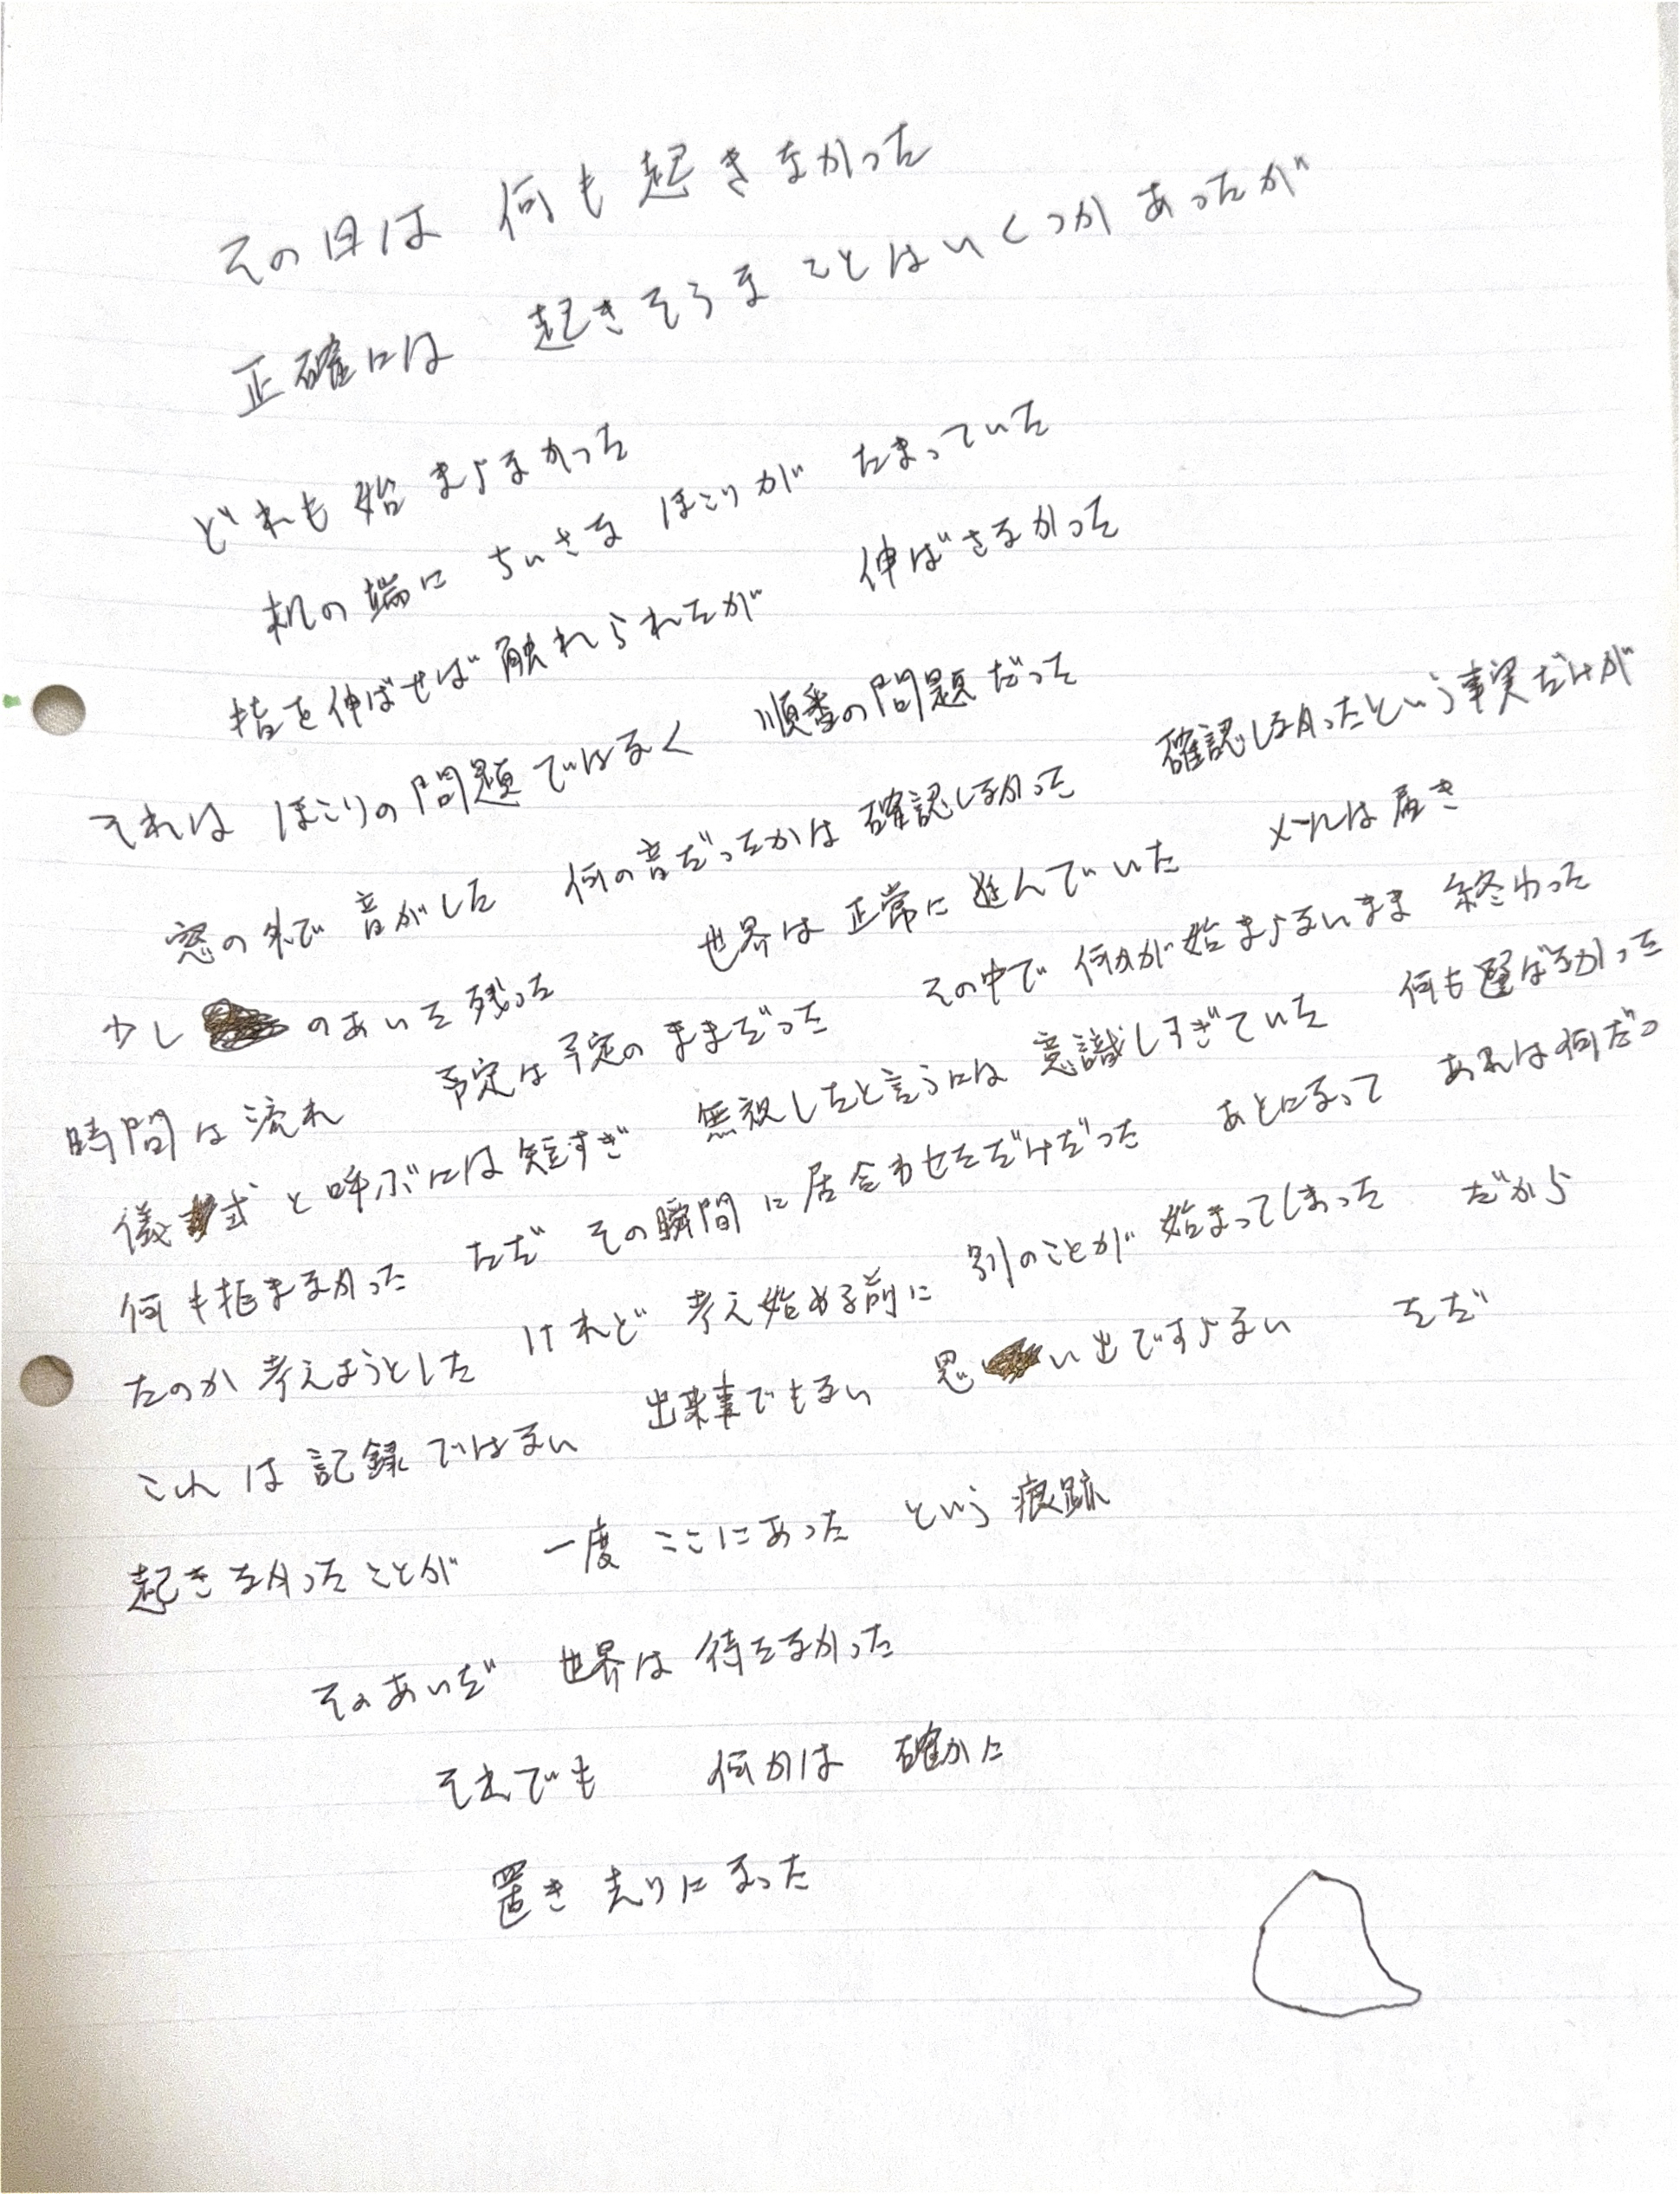 その日は 何も起きなかった
正確には 起きそうなことはいくつかあったが
どれも始まらなかった
机の端に ちいさな ほこりが たまっていた
指を伸ばせば触れられたが 伸ばさなかった
それは ほこりの問題ではなく 順番の問題だった
窓の外で 音がした 何の音だったかは 確認しなかった 確認しなかったという事実だけが
少し のあいだ残った 世界は正常に進んでいた メールは届き
時間は流れ 予定は予定のままだった その中で 何かが始まらないまま 終わった
儀式と呼ぶには短すぎ 無視したと言うには 意識しすぎていた 何も選ばなかった
何も拒まなかった ただ その瞬間に居合わせただけだった あとになって あれは何だっ
たのか 考えようとした けれど 考え始める前に 別のことが 始まってしまった だから
これは記録ではない 出来事でもない 思い出ですらない ただ
起きなかったことが 一度 ここにあった という痕跡
そのあいだ 世界は待たなかった
それでも 何かは 確かに
置き去りになった